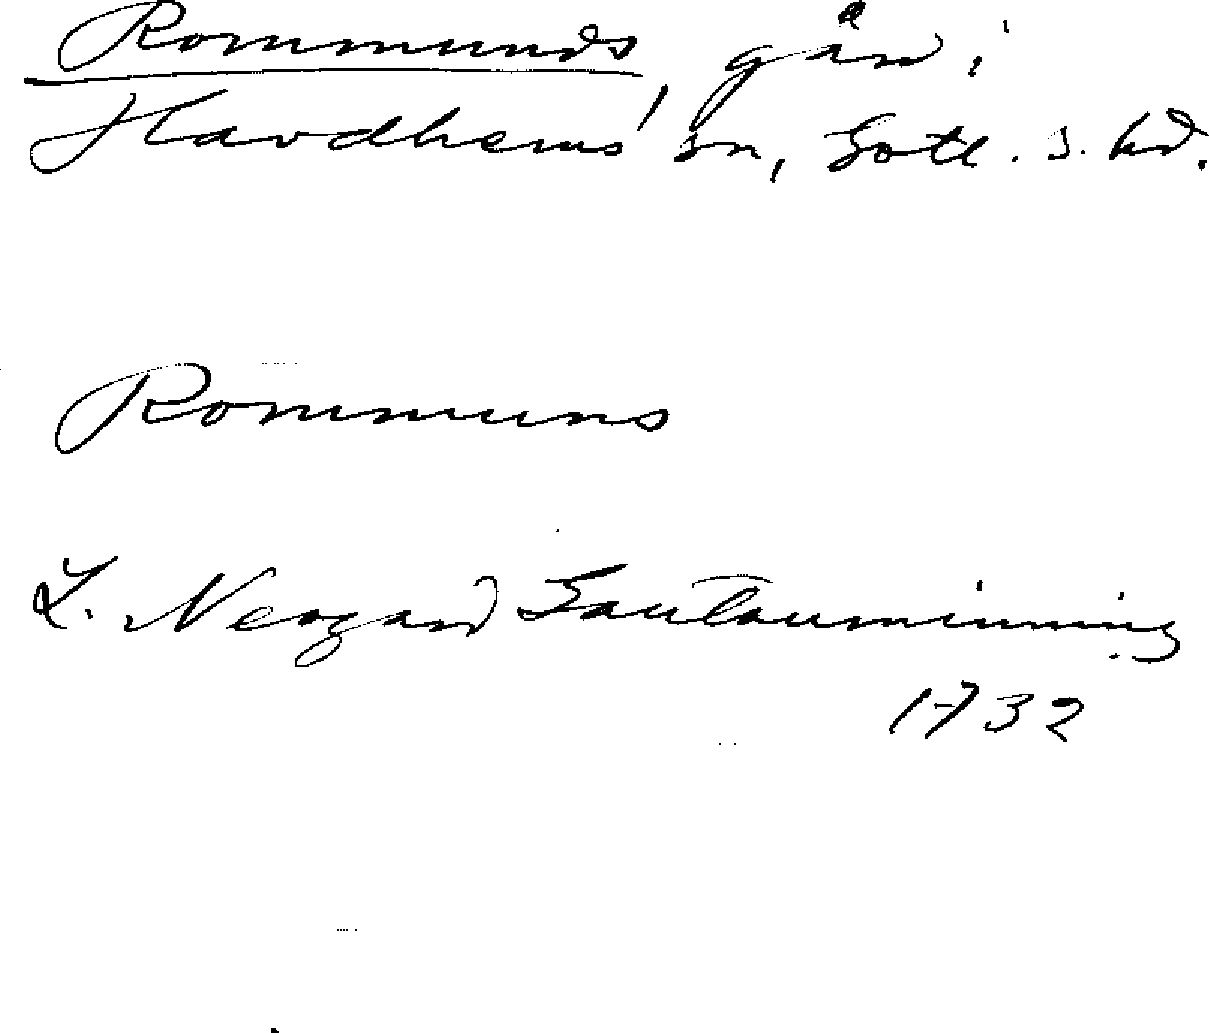 Rommunds, gård i
Havdhems sn, Gotl. s. hd.
Rommuns
L. Neogard Gautauminning
1732